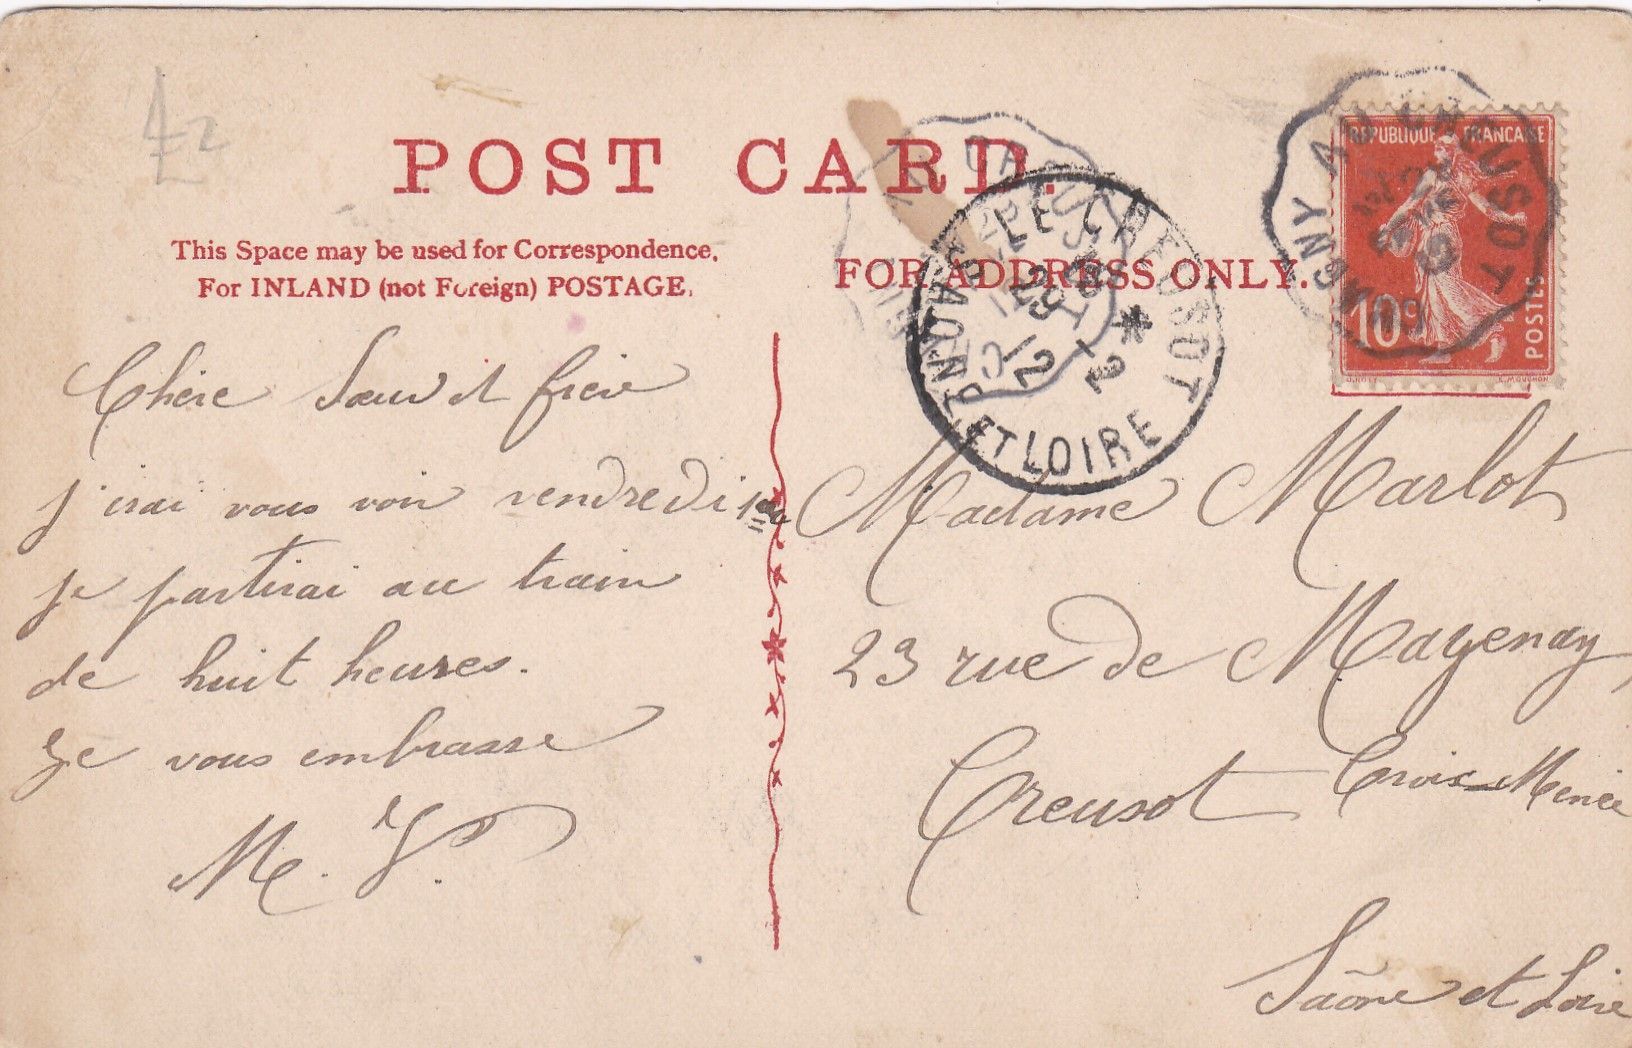 POST CARD.
This Space may be used for Correspondence,
For INLAND (not Foreign) POSTAGE.
FOR ADDRESS ONLY.
REPUBLIQUE FRANCAISE
10c
POSTES
E. MOUCHON
AU CREUSOT
LE CREUSOT
SAONE ET LOIRE
Chère Sœur et frère
j'irai vous voir vendredi
je partirai au train
de huit heures.
Je vous embrasse
M. V.
Madame Marlot
23 rue de Magenay
Creusot Croix-Menée
Saône et Loire